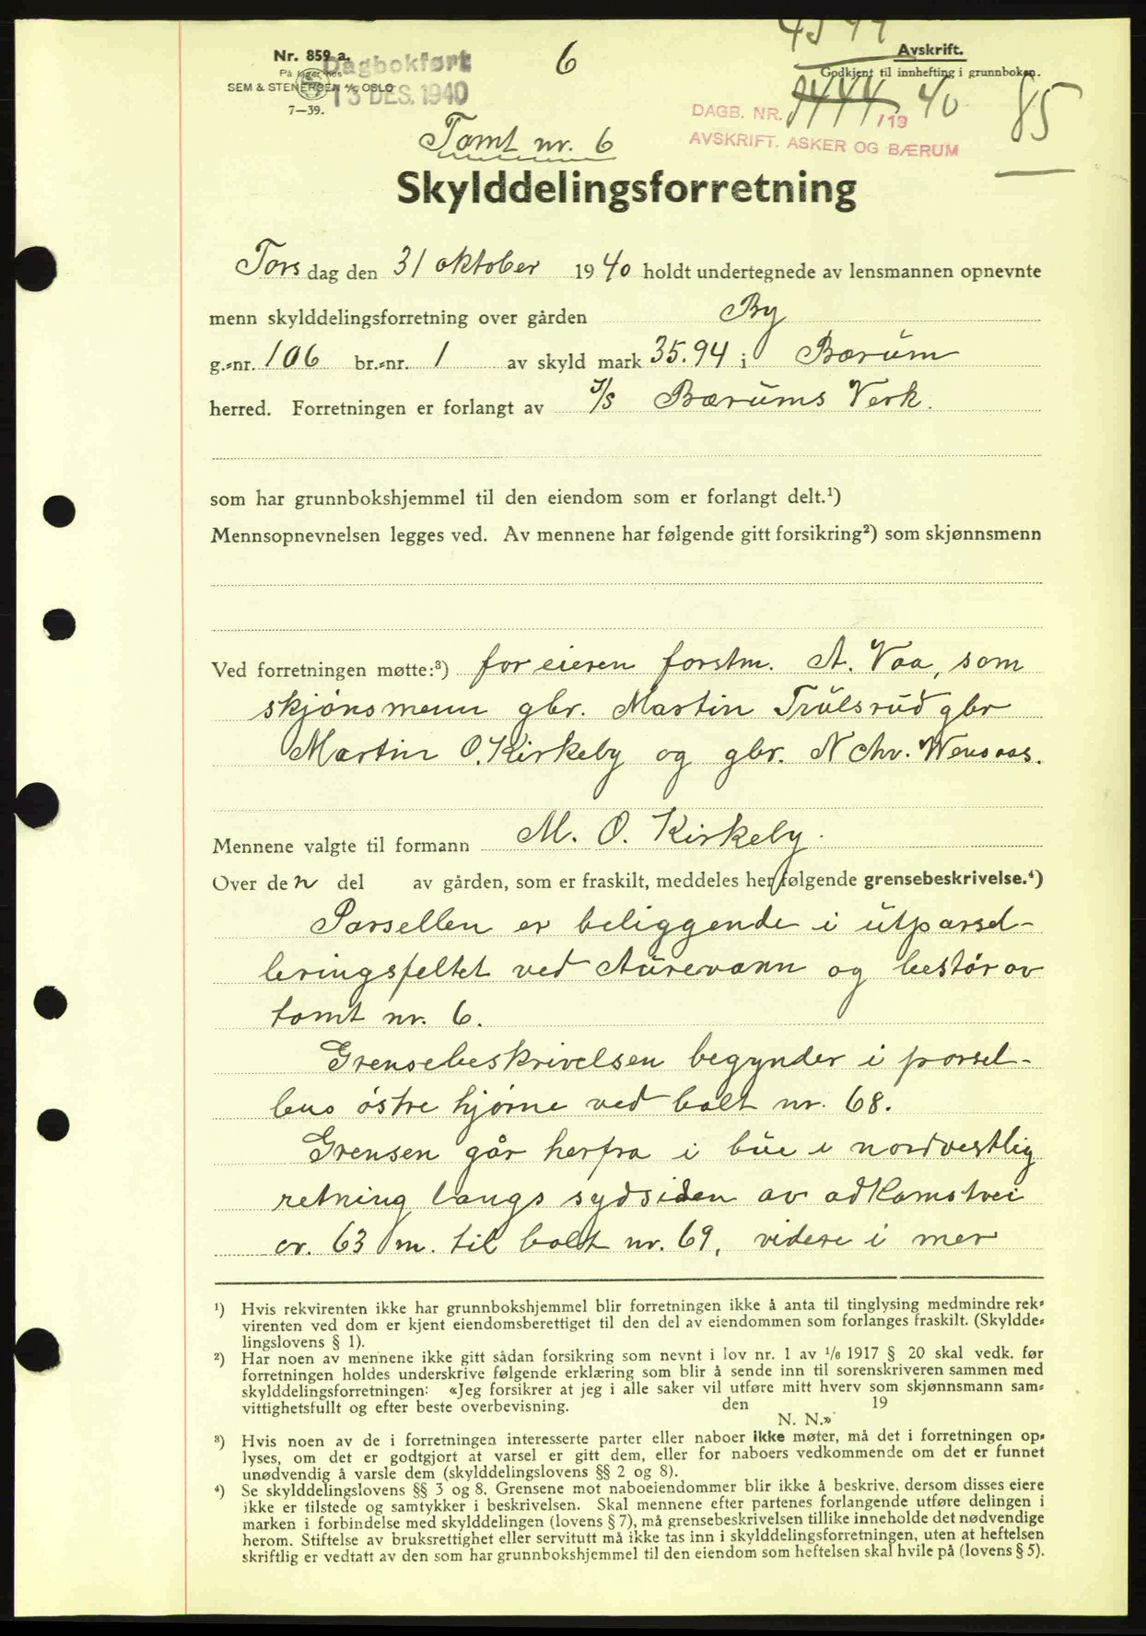 Nr. 859 a.
På lager hos
SEM & STENERSEN A/S OSLO
7—39.
Dagbokført
13 DES. 1940
6
Avskrift.
Godkjent til innhefting i grunnboken.
DAGB. NR. 9444/19 40
AVSKRIFT. ASKER OG BÆRUM
85
Tomt nr. 6
Skylddelingsforretning
Torsdag den 31 oktober 1940 holdt undertegnede av lensmannen opnevnte
menn skylddelingsforretning over gården By
g.-nr. 106 br.-nr. 1 av skyld mark 35.94 i Bærum
herred. Forretningen er forlangt av I/S Bærums Verk.
som har grunnbokshjemmel til den eiendom som er forlangt delt.¹)
Mennsopnevnelsen legges ved. Av mennene har følgende gitt forsikring²) som skjønnsmenn
Ved forretningen møtte:³) for eieren forstm. A. Vaa, som
skjönsmenn gbr. Martin Trulsrud gbr
Martin O. Kirkeby og gbr. N Chr. Wensaas.
Mennene valgte til formann M. O. Kirkeby.
Over den del av gården, som er fraskilt, meddeles her følgende grensebeskrivelse.⁴)
Parsellen er beliggende i utparsel-
leringsfeltet ved Aurevann og består av
tomt nr. 6.
Grensebeskrivelsen begynder i parsel-
lens östre hjörne ved bolt nr. 68.
Grensen går herfra i bue i nordvestlig
retning langs sydsiden av adkomstvei
ca. 63 m. til bolt nr. 69, videre i mer
¹) Hvis rekvirenten ikke har grunnbokshjemmel blir forretningen ikke å anta til tinglysing medmindre rek-
virenten ved dom er kjent eiendomsberettiget til den del av eiendommen som forlanges fraskilt. (Skyldde-
lingslovens § 1).
²) Har noen av mennene ikke gitt sådan forsikring som nevnt i lov nr. 1 av ¹/₆ 1917 § 20 skal vedk. før
forretningen holdes underskrive følgende erklæring som blir å sende inn til sorenskriveren sammen med
skylddelingsforretningen: «Jeg forsikrer at jeg i alle saker vil utføre mitt hverv som skjønnsmann sam-
vittighetsfullt og efter beste overbevisning. den 19
N. N.»
³) Hvis noen av de i forretningen interesserte parter eller naboer ikke møter, må det i forretningen op-
lyses, om det er godtgjort at varsel er gitt dem, eller for naboers vedkommende om det er funnet
unødvendig å varsle dem (skylddelingslovens §§ 2 og 8).
⁴) Se skylddelingslovens §§ 3 og 8. Grensene mot naboeiendommer blir ikke å beskrive, dersom disses eiere
ikke er tilstede og samtykker i beskrivelsen. Skal mennene efter partenes forlangende utføre delingen i
marken i forbindelse med skylddelingen (lovens § 7), må grensebeskrivelsen tillike inneholde det nødvendige
herom. Stiftelse av bruksrettighet eller servitutt må ikke tas inn i skylddelingsforretningen, uten at heftelsen
skriftlig er vedtatt av den som har grunnbokshjemmel til den eiendom som heftelsen skal hvile på (lovens § 5).